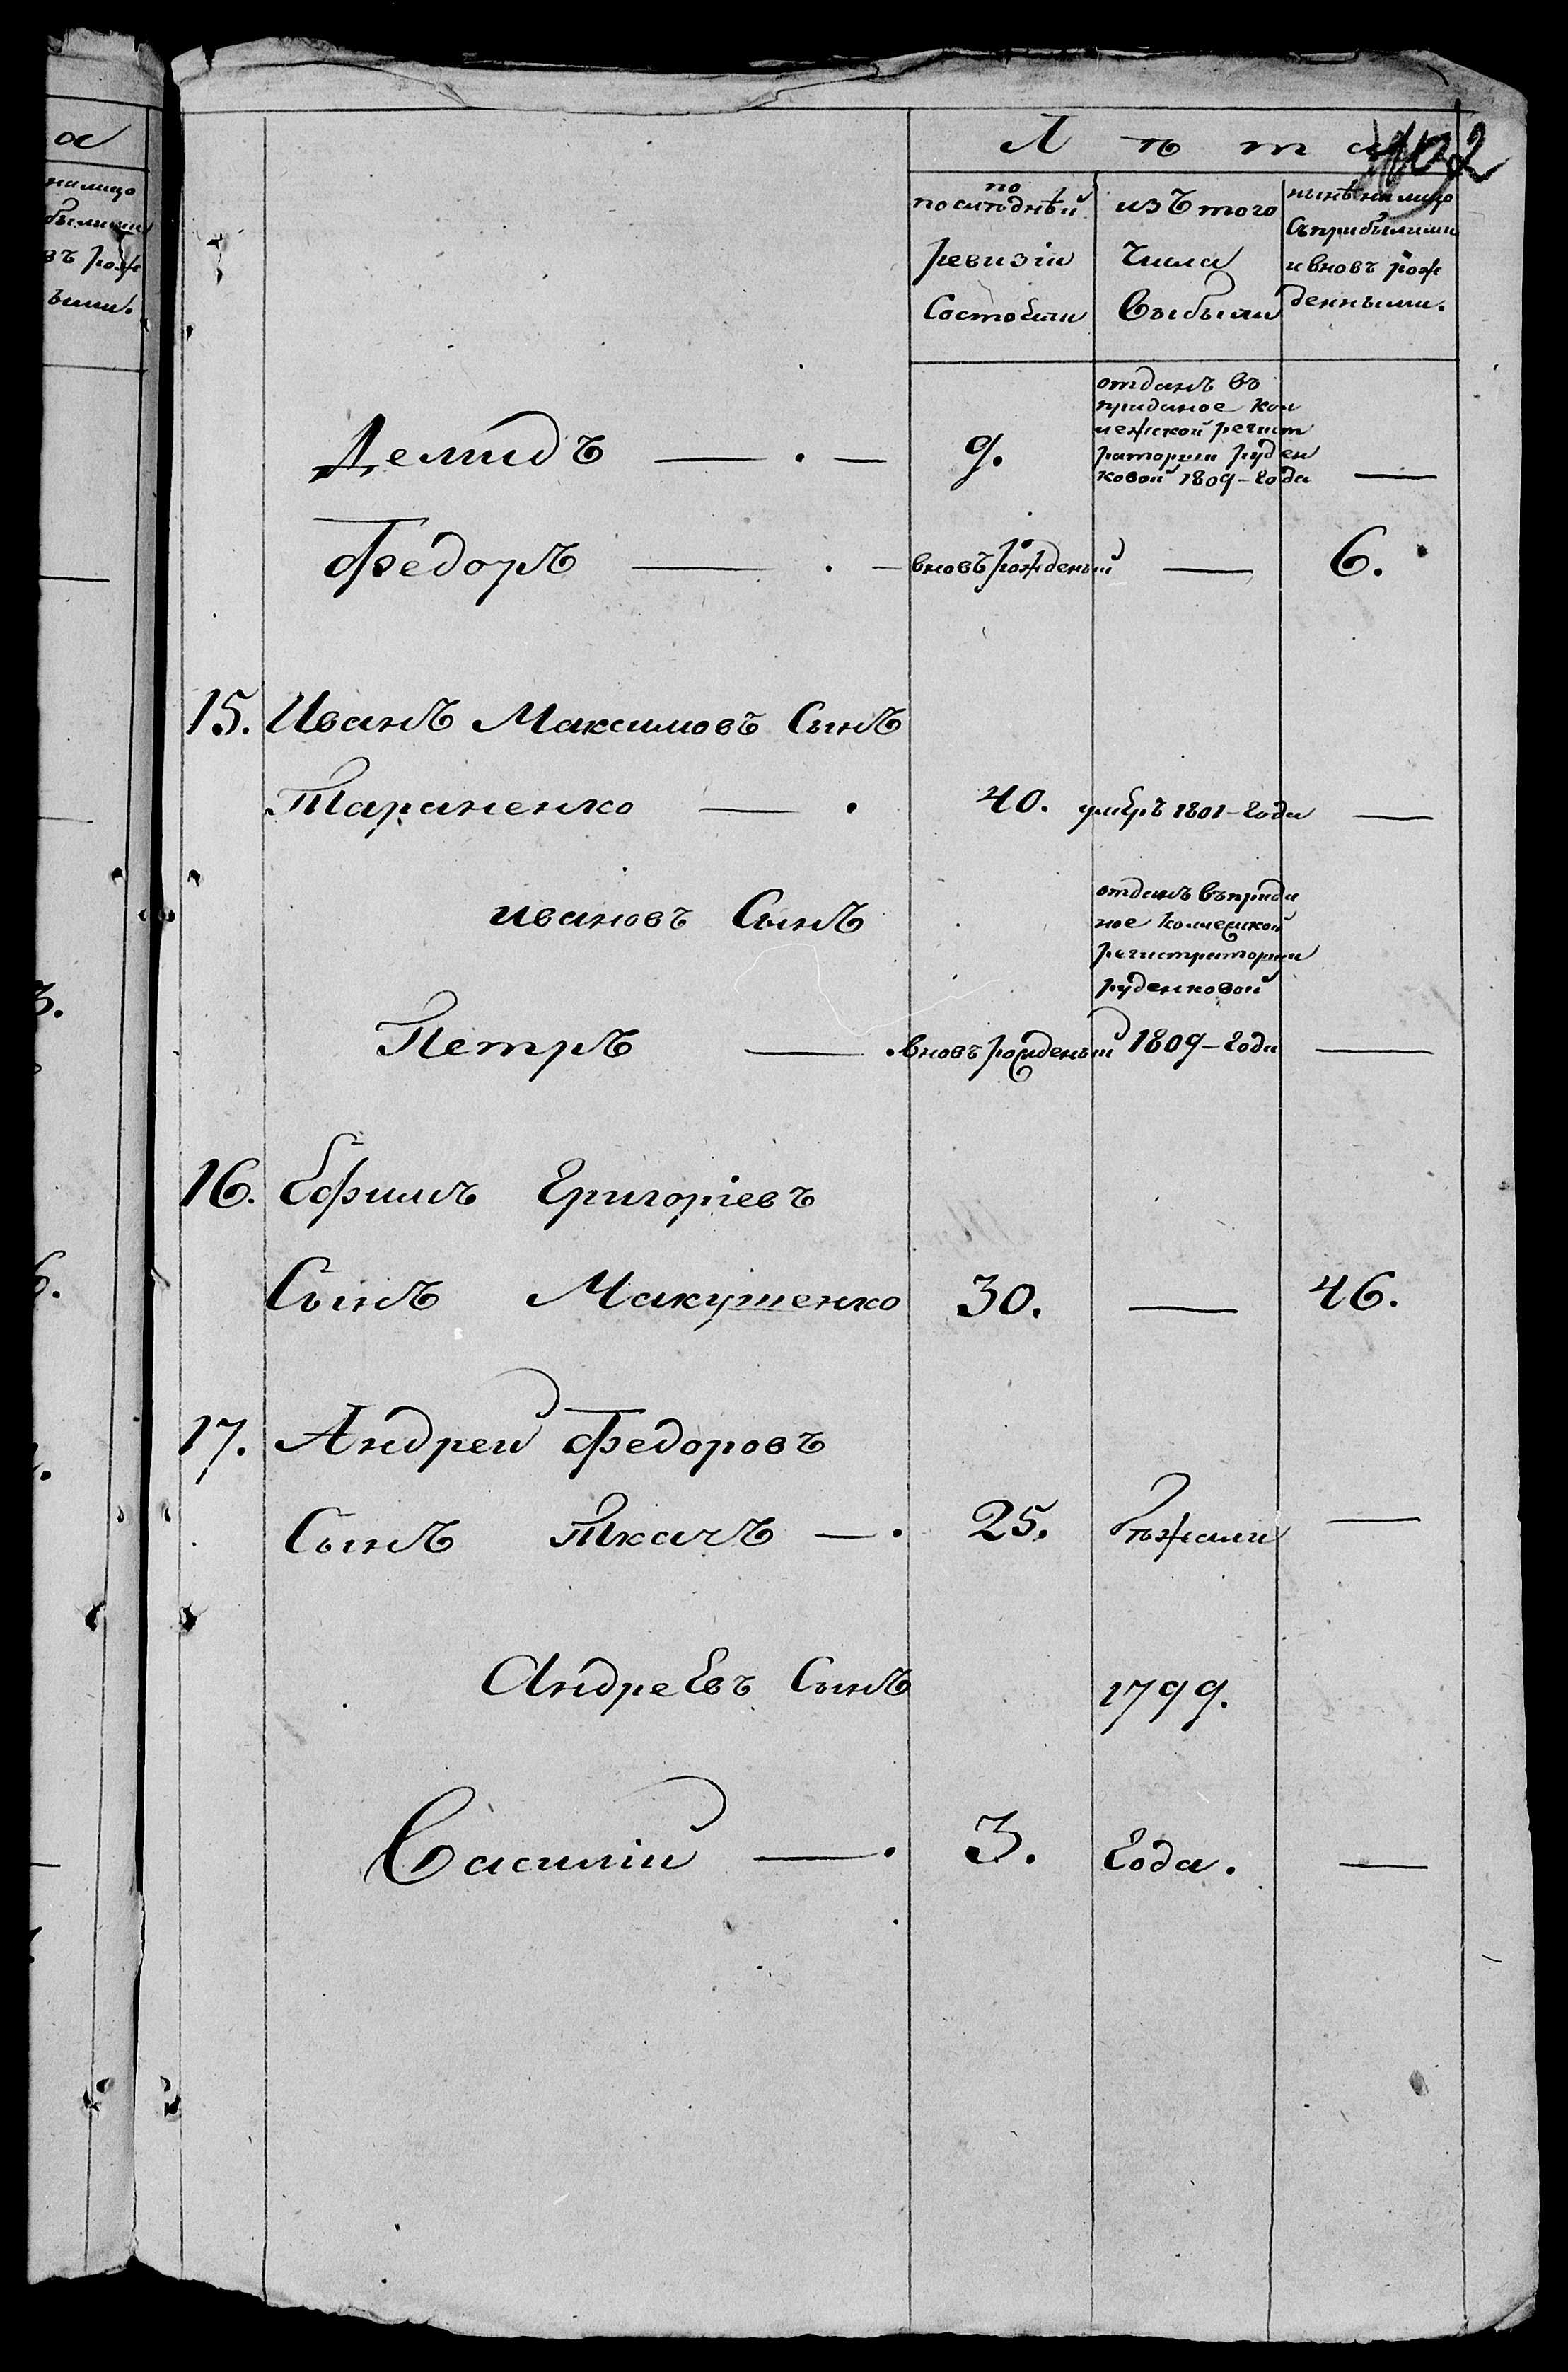 а
налицо
былыми
въ рож
ными.
Л ѣ т а
по
послѣднѣй
ревизіи
Состояли
изъ того
числа
выбыли
нынѣ на лицо
съ прибылыми
и вновь рож
денными.
Демидъ — . — 9.
отданъ въ
приданое кол
лежской регист
раторши Руден
ковой 1809-Года —
Федоръ — . — вновь рожденый — 6.
15. Иванъ Максимовъ Сынъ
Тараненко — . 40. умеръ 1801-Года —
ивановъ Сынъ
отданъ въ прида
ное коллежской
регистраторши
руденковой
Петръ — . вновь рожденый 1809-Года —
16. Ефимъ Григоріевъ
Сынъ Макушенко 30. — 46.
17. Андрей Федоровъ
Сынъ Ткачъ — . 25. бѣжали —
Андреевъ Сынъ 1799.
Василій — . 3. Года. —